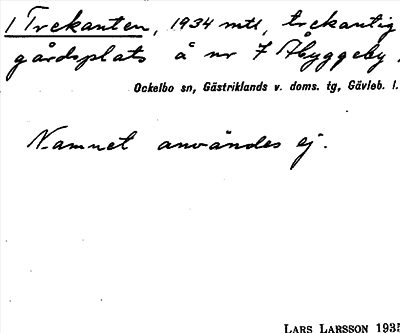 / Trekanten, 1934 mtl, trekantig
gårdsplats å nr 7 Åbyggeby.
Ockelbo sn, Gästriklands v. doms. tg, Gävleb. l.
Namnet användes ej.
LARS LARSSON 1935